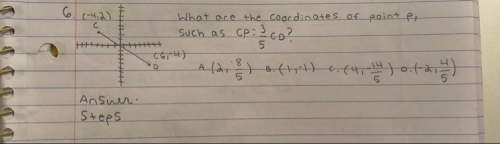 6 (-4,2) What are the coordinates of point P,
C such as CP = 3/5 CD?
(6,-4)
D A. (2, 8/5) B. (1,-1) C. (4, -14/5) D. (-2, 4/5)
Answer.
Steps